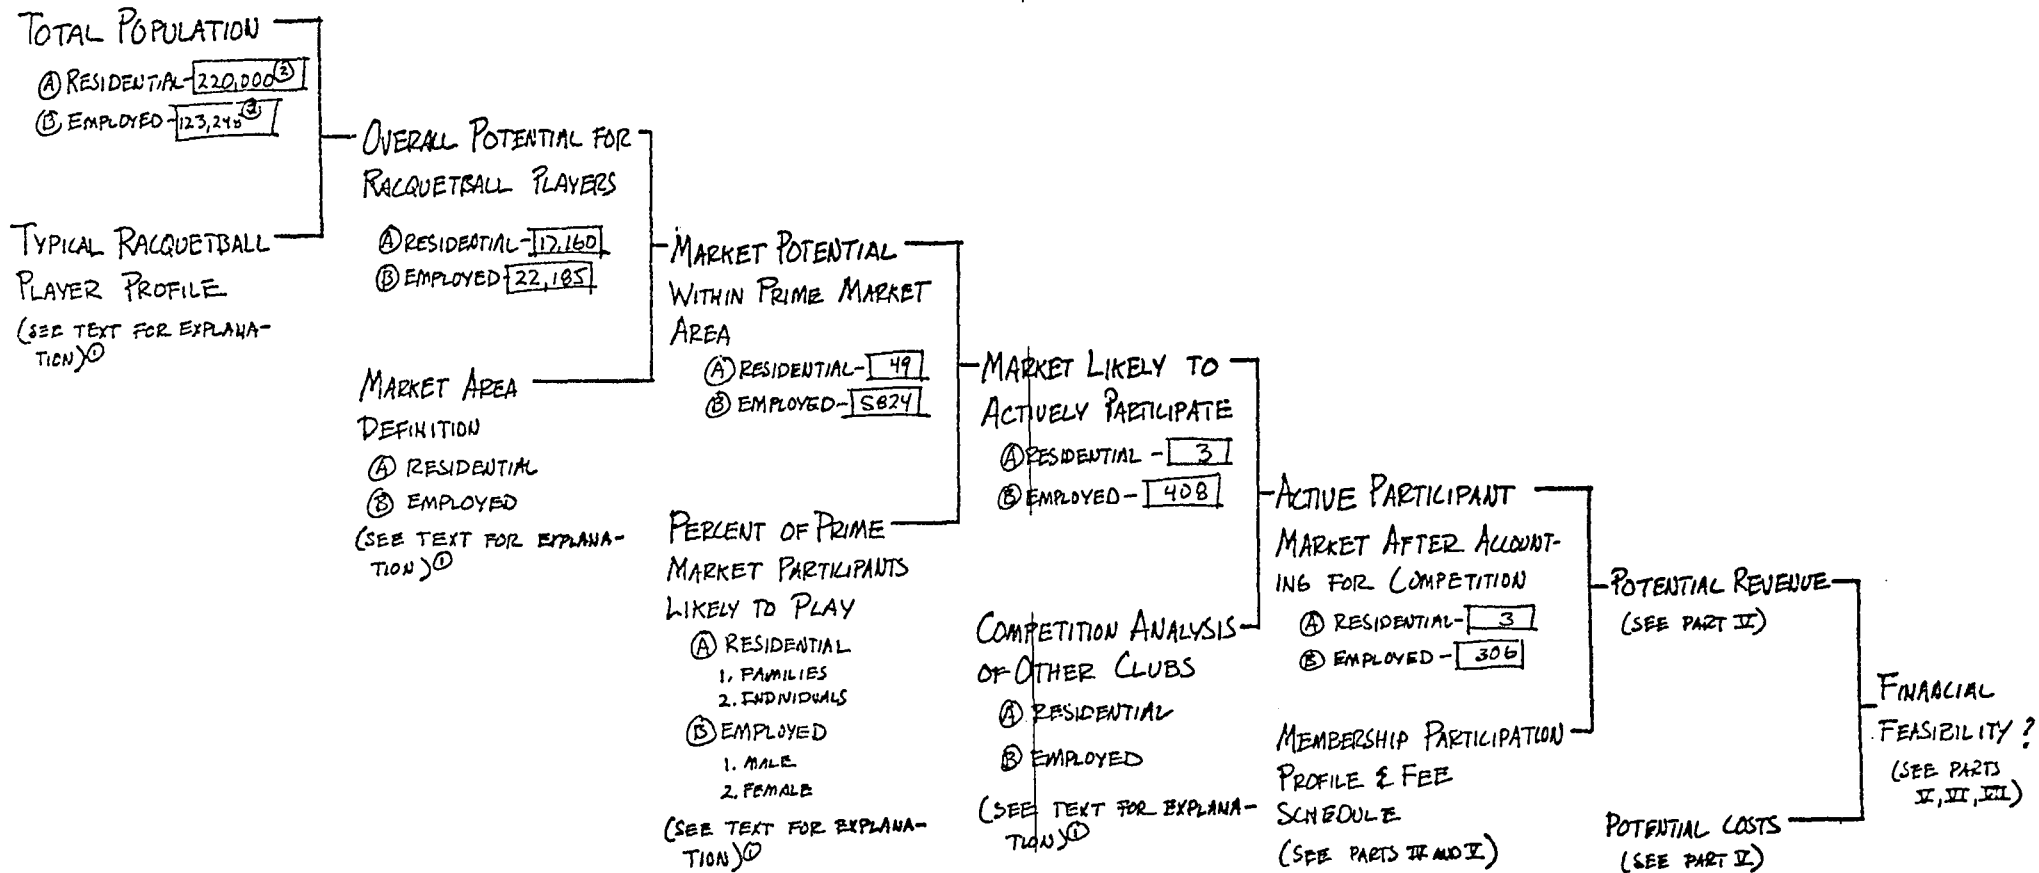 TOTAL POPULATION
Ⓐ RESIDENTIAL - 220,000 ②
Ⓑ EMPLOYED - ②
TYPICAL RACQUETBALL
PLAYER PROFILE
(SEE TEXT FOR EXPLANA-
TION) ①
OVERALL POTENTIAL FOR
RACQUETBALL PLAYERS
Ⓐ RESIDENTIAL - 17,160
Ⓑ EMPLOYED - 22,185
MARKET AREA
DEFINITION
Ⓐ RESIDENTIAL
Ⓑ EMPLOYED
(SEE TEXT FOR EXPLANA-
TION) ①
MARKET POTENTIAL
WITHIN PRIME MARKET
AREA
Ⓐ RESIDENTIAL - 49
Ⓑ EMPLOYED - 5824
PERCENT OF PRIME
MARKET PARTICIPANTS
LIKELY TO PLAY
Ⓐ RESIDENTIAL
1. FAMILIES
2. INDIVIDUALS
Ⓑ EMPLOYED
1. MALE
2. FEMALE
(SEE TEXT FOR EXPLANA-
TION) ①
MARKET LIKELY TO
ACTIVELY PARTICIPATE
Ⓐ RESIDENTIAL - 3
Ⓑ EMPLOYED - 408
COMPETITION ANALYSIS
OF OTHER CLUBS
Ⓐ RESIDENTIAL
Ⓑ EMPLOYED
(SEE TEXT FOR EXPLANA-
TION) ①
ACTIVE PARTICIPANT
MARKET AFTER ACCOUNT-
ING FOR COMPETITION
Ⓐ RESIDENTIAL - 3
Ⓑ EMPLOYED - 306
MEMBERSHIP PARTICIPATION
PROFILE & FEE
SCHEDULE
(SEE PARTS IV AND V)
POTENTIAL REVENUE
(SEE PART )
POTENTIAL COSTS
(SEE PART V)
FINANCIAL
FEASIBILITY?
(SEE PARTS
V, VI, VII)